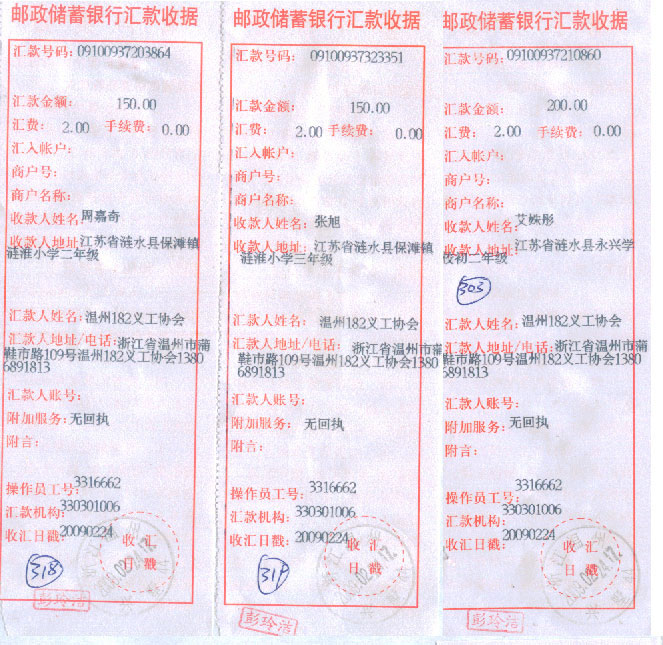 邮政储蓄银行汇款收据
汇款号码:09100937203864
汇款金额: 150.00
汇费: 2.00 手续费: 0.00
汇入帐户:
商户号:
商户名称:
收款人姓名:周嘉奇
收款人地址:江苏省涟水县保滩镇
涟淮小学二年级
汇款人姓名:温州182义工协会
汇款人地址/电话:浙江省温州市蒲
鞋市路109号温州182义工协会1380
6891813
汇款人账号:
附加服务:无回执
附言:
操作员工号:3316662
汇款机构:330301006
收汇日戳:20090224
收汇
日戳
318
彭玲洁
邮政储蓄银行汇款收据
汇款号码: 09100937323351
汇款金额: 150.00
汇费: 2.00 手续费: 0.00
汇入帐户:
商户号:
商户名称:
收款人姓名: 张旭
收款人地址:江苏省涟水县保滩镇
涟淮小学三年级
汇款人姓名: 温州182义工协会
汇款人地址/电话: 浙江省温州市蒲
鞋市路109号温州182义工协会1380
6891813
汇款人账号:
附加服务: 无回执
附言:
操作员工号:3316662
汇款机构:330301006
收汇日戳:20090224
收汇
日戳
彭玲洁
邮政储蓄银行汇款收据
汇款号码:09100937210860
汇款金额: 200.00
汇费: 2.00 手续费: 0.00
汇入帐户:
商户号:
商户名称:
收款人姓名:艾姝彤
收款人地址:江苏省涟水县永兴学
校初二年级
303
汇款人姓名:温州182义工协会
汇款人地址/电话:浙江省温州市蒲
鞋市路109号温州182义工协会1380
6891813
汇款人账号:
附加服务:无回执
附言:
操作员工号: 3316662
汇款机构:330301006
收汇日戳:20090224
收汇
日戳
彭玲洁